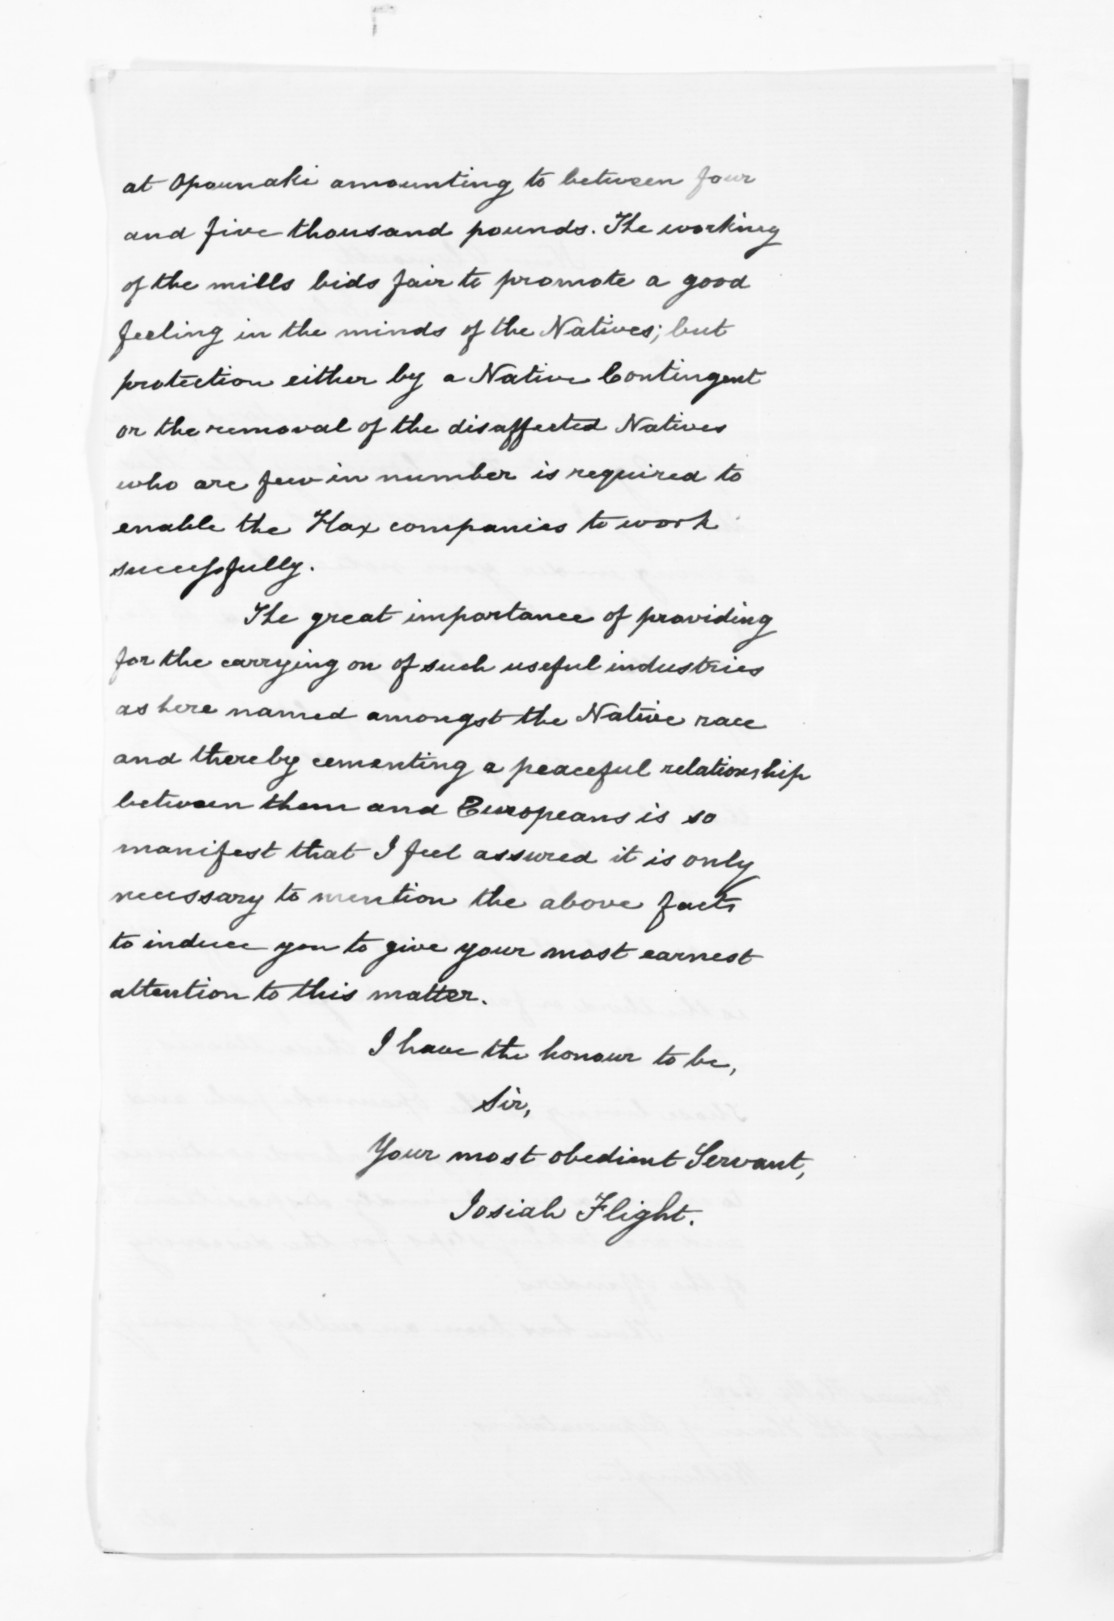 at Opounaki amounting to between four
and five thousand pounds. The working
of the mills bids fair to promote a good
feeling in the minds of the Natives; but
protection either by a Native Contingent
or the removal of the disaffected Natives
who are few in number is required to
enable the Flax companies to work
successfully.
The great importance of providing
for the carrying on of such useful industries
as here named amongst the Native race
and thereby cementing a peaceful relationship
between them and Europeans is so
manifest that I feel assured it is only
necessary to mention the above facts
to induce you to give your most earnest
attention to this matter.
I have the honour to be,
Sir,
Your most obedient Servant,
Josiah Flight.